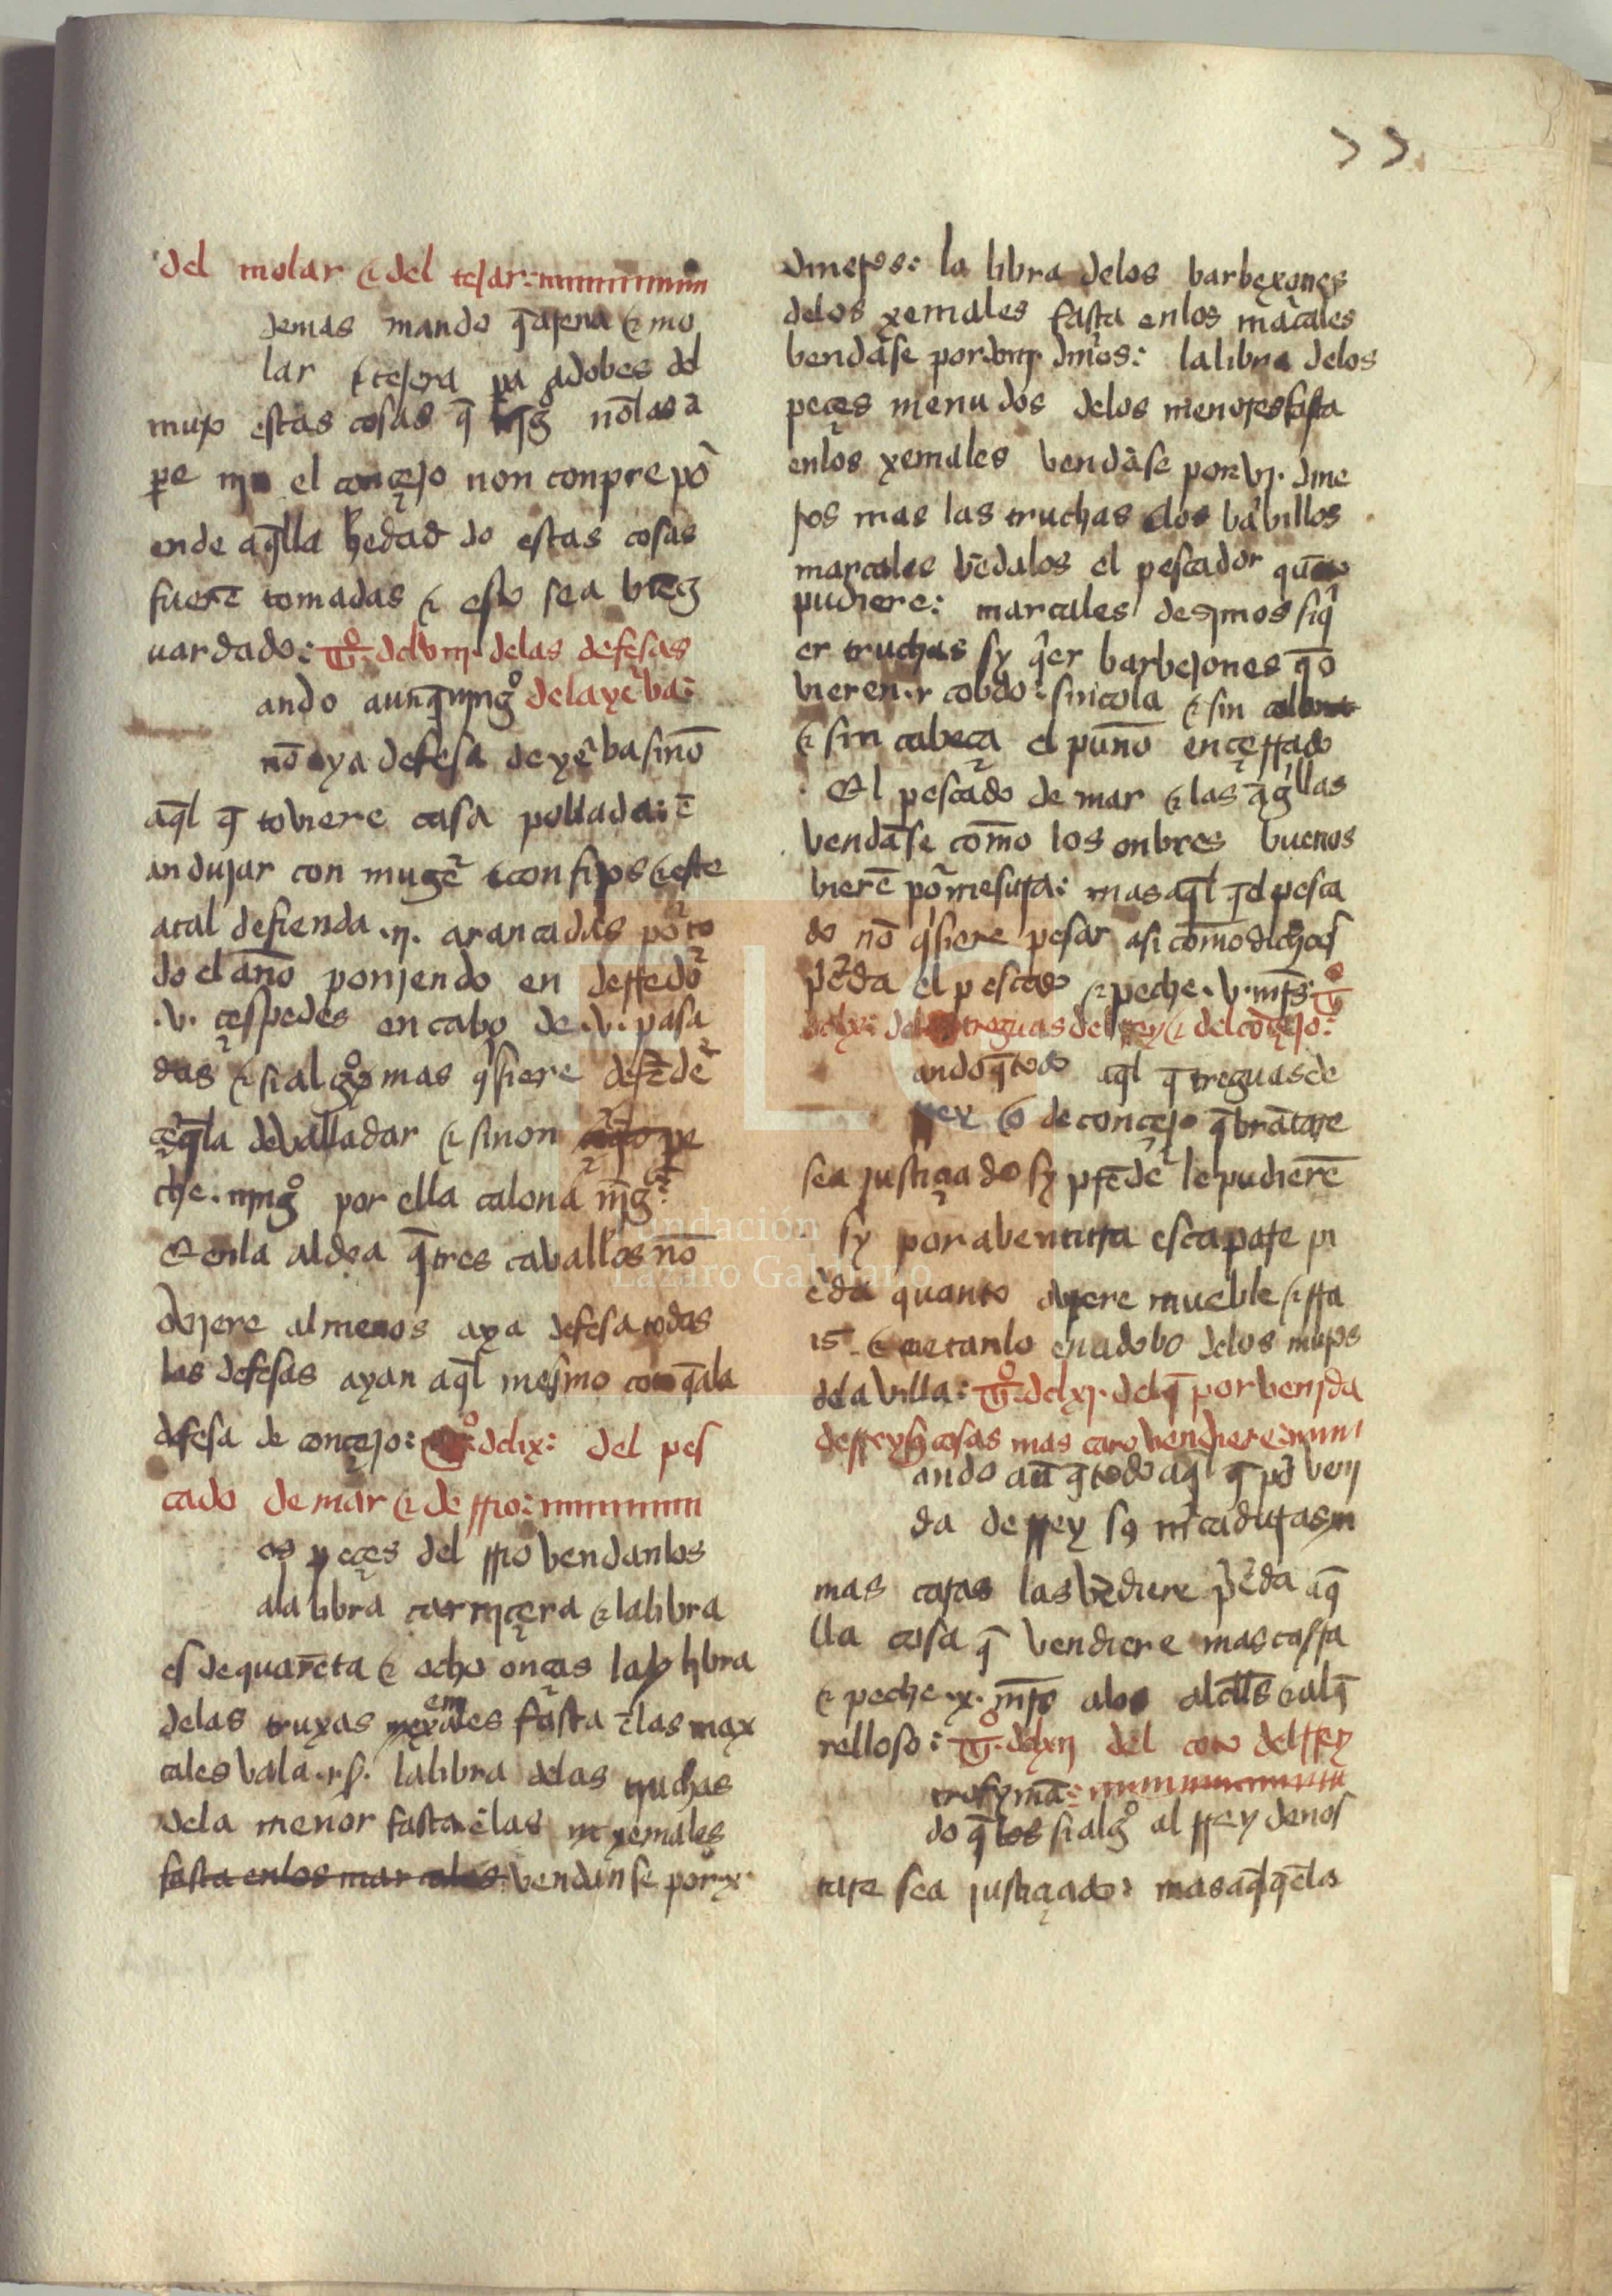 del molar ⁊ del tejar:
demas mando q̄ arena ⁊ mo
lar ⁊ tejera pa adobes del
muro estas cosas q̄ nō las a
pe el conçejo non conpre pō
ende aq̄lla hedad do estas cosas
fuerē tomadas ⁊ esto sea bieg
uardado: tº. dclviij. delas defesas
ando aun q̄ ningº dela yêba:
nō aya defesa de yêba sinō
aq̄l q̄ toviere casa pollada: ē
andujar con mugē ⁊ con fijos ⁊ este
atal defienda .ij. arancadas pō to
do el año ponjendo en derredō
.v. çespedes en cabo de .v. pasa
das ⁊ si algº mas q̂siere defēdē
aq̄la devalladar ⁊ sinon pe
che. ningº por ella calona
E enla aldea q̄ tres caballos nō
oviere al menos aya defesa todas
las defesas ayan aq̄l mesmo coto q̄ ala
defesa de conçejo: dclix: del pes
cado de mar ⁊ de rrio:
os peçes del rrio vendanlos
ala libra carniçera ⁊ la libra
es de quarēta ⁊ ocho onças la libra
delas truxas xemales fasta ē las mar
cales vala . la libra delas truchas
dela menor fasta ē las xemales
fasta enlos marcales vendanse por x
dineros: la libra delos barbexones
delos xemales fasta enlos marcales
bendāse por dros: la libra delos
peçes menudos delos menores fasta
enlos xemales vendāse por vj. dine
ros mas las truchas los barbillos
marcales vēdalos el pescador quāto
pudiere: marcales desimos siq̂
er truchas sy q̂er barbejones q̄ o
vieren .i. cobdo: sin cola ⁊ sin
⁊ sin cabeça el puño ençerrado
El pescado de mar ⁊ las āg̑llas
vendāse como los onbres buenos
vierē pō mesura: mas aq̄l q̄ el pesca
do nō q̂siere pesar asi como dicho es
pē̂da el pescado ⁊ peche .v. mr̄s. tº
dclx: delas treguas del rrey ⁊ del cōçejo:
ando q̄ todo aq̄l q̄ treguas de
rrey o de conçejo q̄brātare
sea justiçiado sy prēdē le pudierē
sy por aventura escapare pi
ēda quanto oviere mueble ⁊ rra
is ⁊ metanlo en adobo delos muros
dela villa: tº. dclxj. del q̄ por venjda
de rrey sus cosas mas caro vendiere:
ando aū q̄ todo aq̄l q̄ pō venj
da de rrey sus m̂cadurias
mas caras las vēdiere pē̂da aq̄
lla cosa q̄ vendiere mas carra
⁊ peche .x. mr̄s alos alclls ⁊ al q̄
relloso: tº. dclxij del coto del rrey
trosy mā:
do q̄ los si algº al rrey denos
tare sea justiçiado: mas aq̄l q̄ ē la